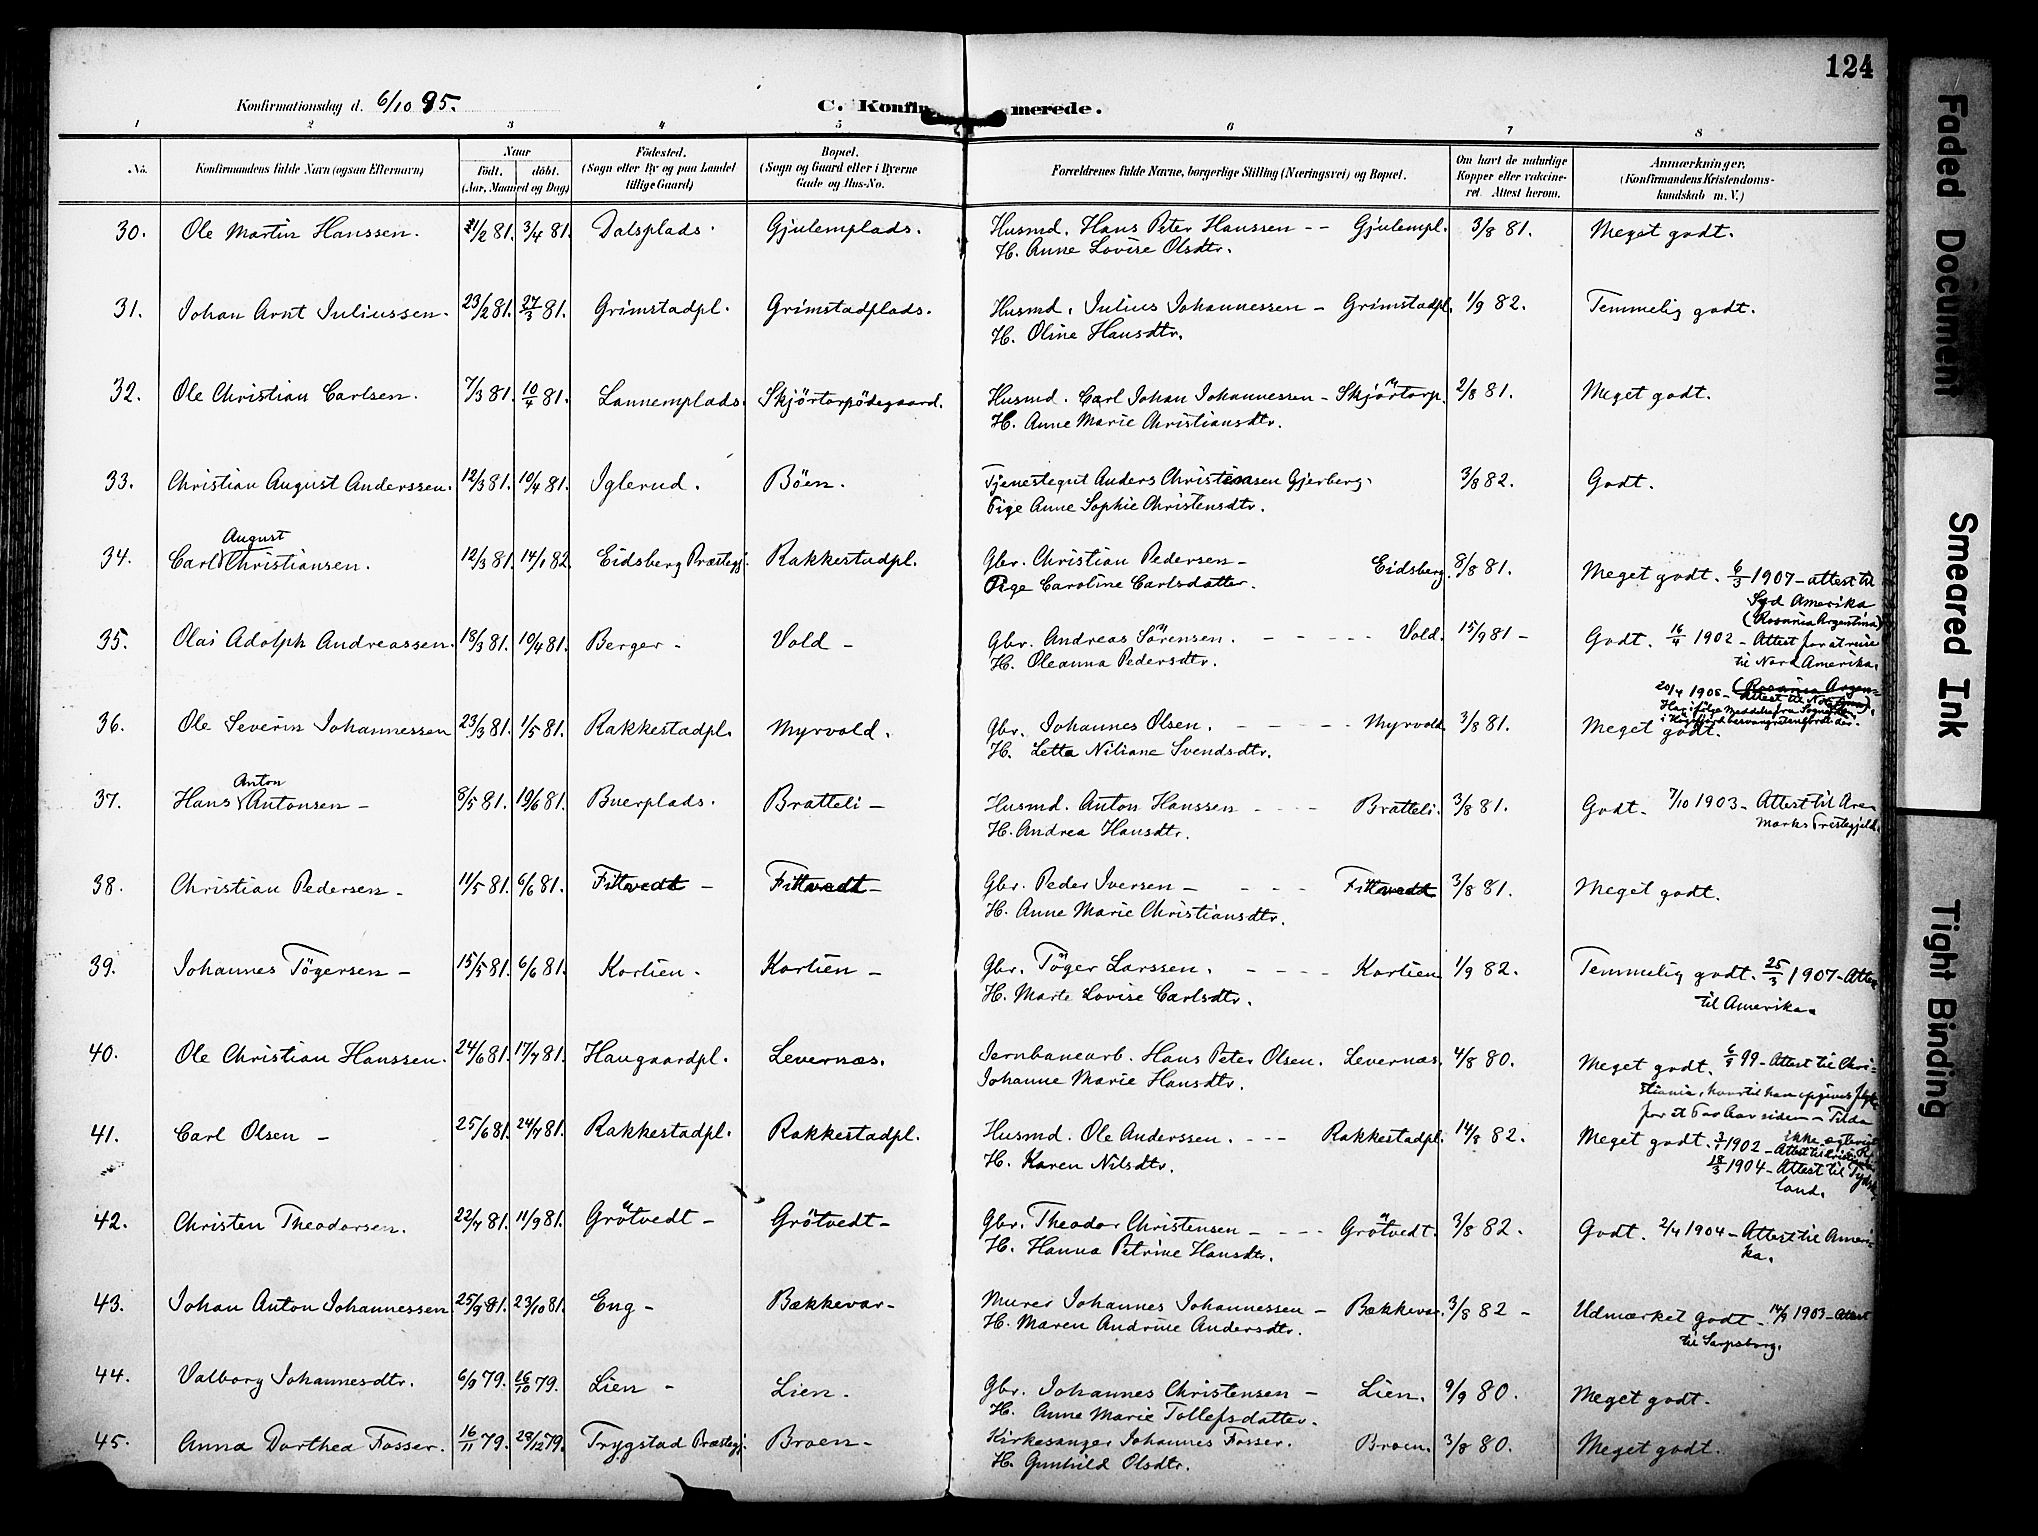 124
Konfirmationsdag d. 6/10 95.
C. Konfirmerede.
1 2 3 4 5 6 7 8
No. Konfirmandens fulde Navn (ogsaa Efternavn) Naar födt. döbt. (Aar, Maaned og Dag) Födested. (Sogn eller By og paa Landet tillige Gaard) Bopæl. (Sogn og Gaard eller i Byerne Gade og Hus-No. Forældrenes fulde Navne, borgerlige Stilling (Næringsvei) og Bopæl. Om havt de naturlige Kopper eller vaccineret. Attest herom. Anmærkninger. (Konfirmandens Kristendomskundskab m. V.)
30. Ole Martin Hanssen. 21/2 81. 3/4 81. Dalsplads. Gjulemplads. Husmd. Hans Peter Hanssen -- Gjulempl. 3/8 81. Meget godt.
H. Anne Lovise Olsdtr.
31. Johan Arnt Juliussen. 23/2 81. 27/3 81. Grimstadpl. Grimstadplads. Husmd. Julius Johannessen - Grimstadpl. 1/9 82. Temmelig godt.
H. Oline Hansdtr.
32. Ole Christian Carlsen. 7/3 81. 10/4 81. Lannemplads. Skjörtorpödegaard. Husmd. Carl Johan Johannessen - Skjörtorp. 2/8 81. Meget godt.
H. Anne Marie Christiansdtr.
33. Christian August Anderssen. 12/3 81. 10/4 81. Iglerud. Böen. Tjenestegut Anders Christensen Gjerberg. 3/8 82. Godt.
Pige Anne Sophie Christensdtr.
August
34. Carl Christiansen. 12/3 81. 14/1 82. Eidsberg Præstegj. Rakkestadpl. Gbr. Christian Pedersen - Eidsberg. 8/8 81. Meget godt. 6/3 1907 - attest til
Pige Caroline Carlsdatter. Syd Amerika
(Rosario Argentina)
35. Olai Adolph Andreassen. 18/3 81. 10/4 81. Berger - Vold - Gbr. Andreas Sörensen. - - - - Vold. 15/9 81 - Godt. 16/4 1902 - Attest for at reise
H. Oleanna Pedersdtr. til Nord Amerika.
20/4 1906 -
36. Ole Severin Johannessen 23/3 81. 1/5 81. Rakkestadpl. Myrvold. Gbr. Johannes Olsen. - - - - Myrvold. 3/8 81. Meget godt.
H. Letta Niliane Svendsdtr.
Anton
37. Hans Antonsen - 8/5 81. 19/6 81. Buerplads. Bratteli - Husmd. Anton Hanssen - - - - Bratteli. 3/8 81. Godt. 7/10 1903 - Attest til Aremarks Prestegjeld.
H. Andrea Hansdtr.
38. Christian Pedersen - 11/5 81. 6/6 81. Fittvedt - Fittvedt - Gbr. Peder Iversen - - - - Fittvedt 3/8 81. Meget godt.
H. Anne Marie Christiansdtr.
39. Johannes Tögersen - 15/5 81. 6/6 81. Kortien. Kortien - Gbr. Töger Larssen. - - - - Kortien 1/9 82. Temmelig godt. 25/3 1907 - Attest
H. Marte Lovise Carlsdtr. til Amerika.
40. Ole Christian Hanssen. 24/6 81. 17/7 81. Haugaardpl. Levernæs. Jernbanearb. Hans Peter Olsen. Levernæs. 4/8 80. Meget godt. 6/9 99 - Attest til Chri-
Johanne Marie Hansdtr. stiania, hvortil han opgives flyt
for et Par Aar siden -
41. Carl Olsen - 25/6 81. 24/7 81. Rakkestadpl. Rakkestadpl. Husmd. Ole Anderssen. - - - Rakkestadpl. 14/8 82. Meget godt. 3/1 1902 - Attest til
H. Karen Nilsdtr. 18/3 1904 - Attest til Tydsk
land.
42. Christen Theodorsen. 22/7 81. 11/9 81. Grötvedt - Grötvedt - Gbr. Theodor Christensen - - - - Grötvedt. 3/8 82. Godt. 2/4 1904 - Attest til Ameri-
H. Hanna Petrine Hansdtr. ka.
43. Johan Anton Johannessen 25/9 81. 23/10 81. Eng - Bækkevar - Murer Johannes Johannessen - Bækkevar. 3/8 82 - Udmærket godt - 14/9 1903 - Attest
H. Maren Andrine Andersdtr. til Sarpsborg.
44. Valborg Johannesdtr. 6/9 79. 26/10 79. Lien - Lien. Gbr. Johannes Christensen - Lien. 9/9 80. Meget godt.
H. Anne Marie Tollefsdatter.
45. Anna Dorthea Fosser. 16/11 79. 28/12 79. Trygstad Præstegj. Broen - Kirkesanger Johannes Fosser. Broen. 3/8 80. Meget godt.
H. Gunhild Olsdtr.
Faded Document
Smeared Ink
Tight Binding